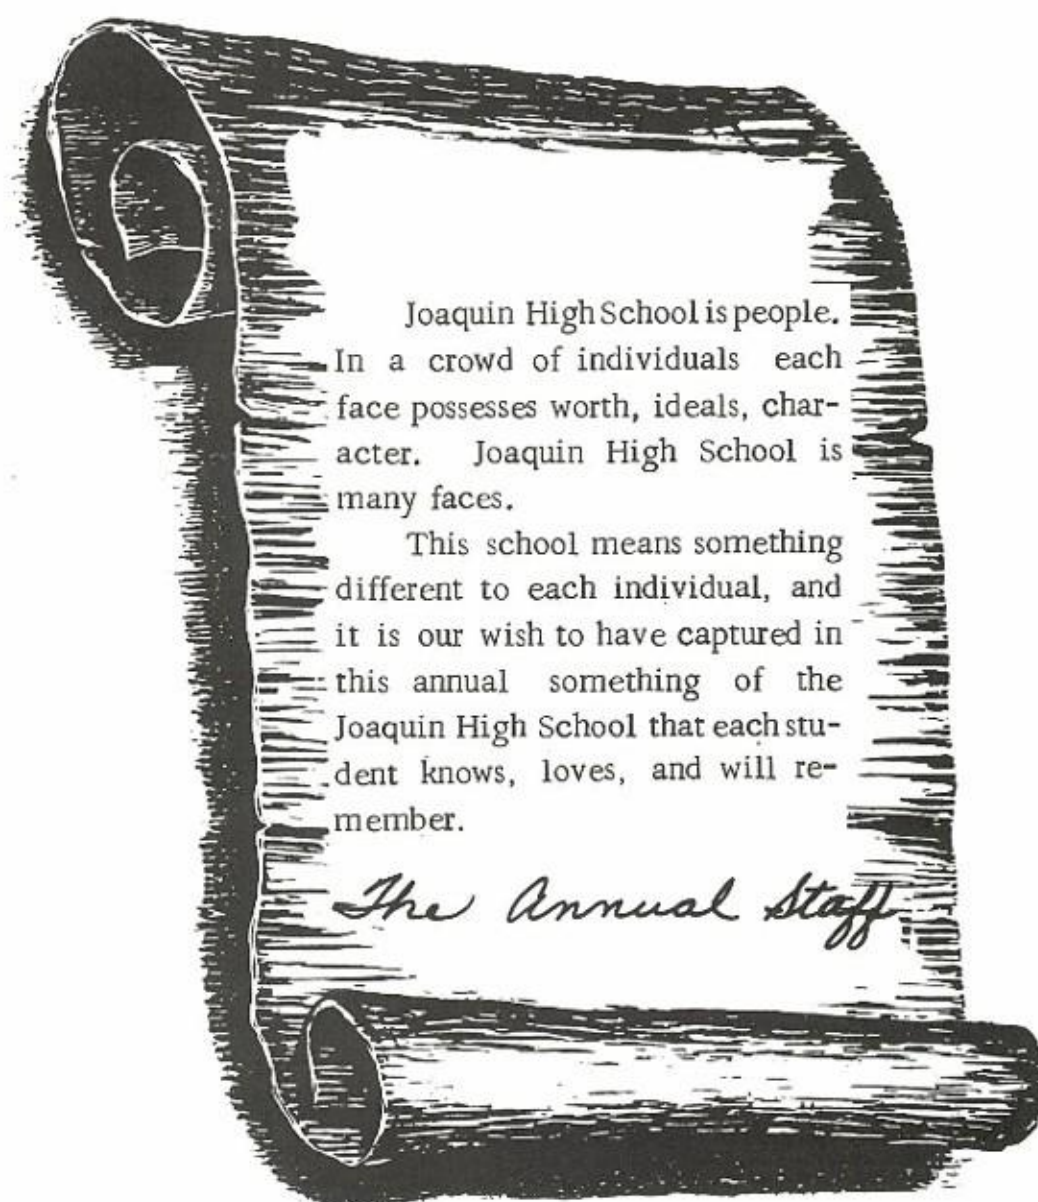 Joaquin High School is people.
In a crowd of individuals each
face possesses worth, ideals, char-
acter. Joaquin High School is
many faces.
This school means something
different to each individual, and
it is our wish to have captured in
this annual something of the
Joaquin High School that each stu-
dent knows, loves, and will re-
member.
The Annual Staff